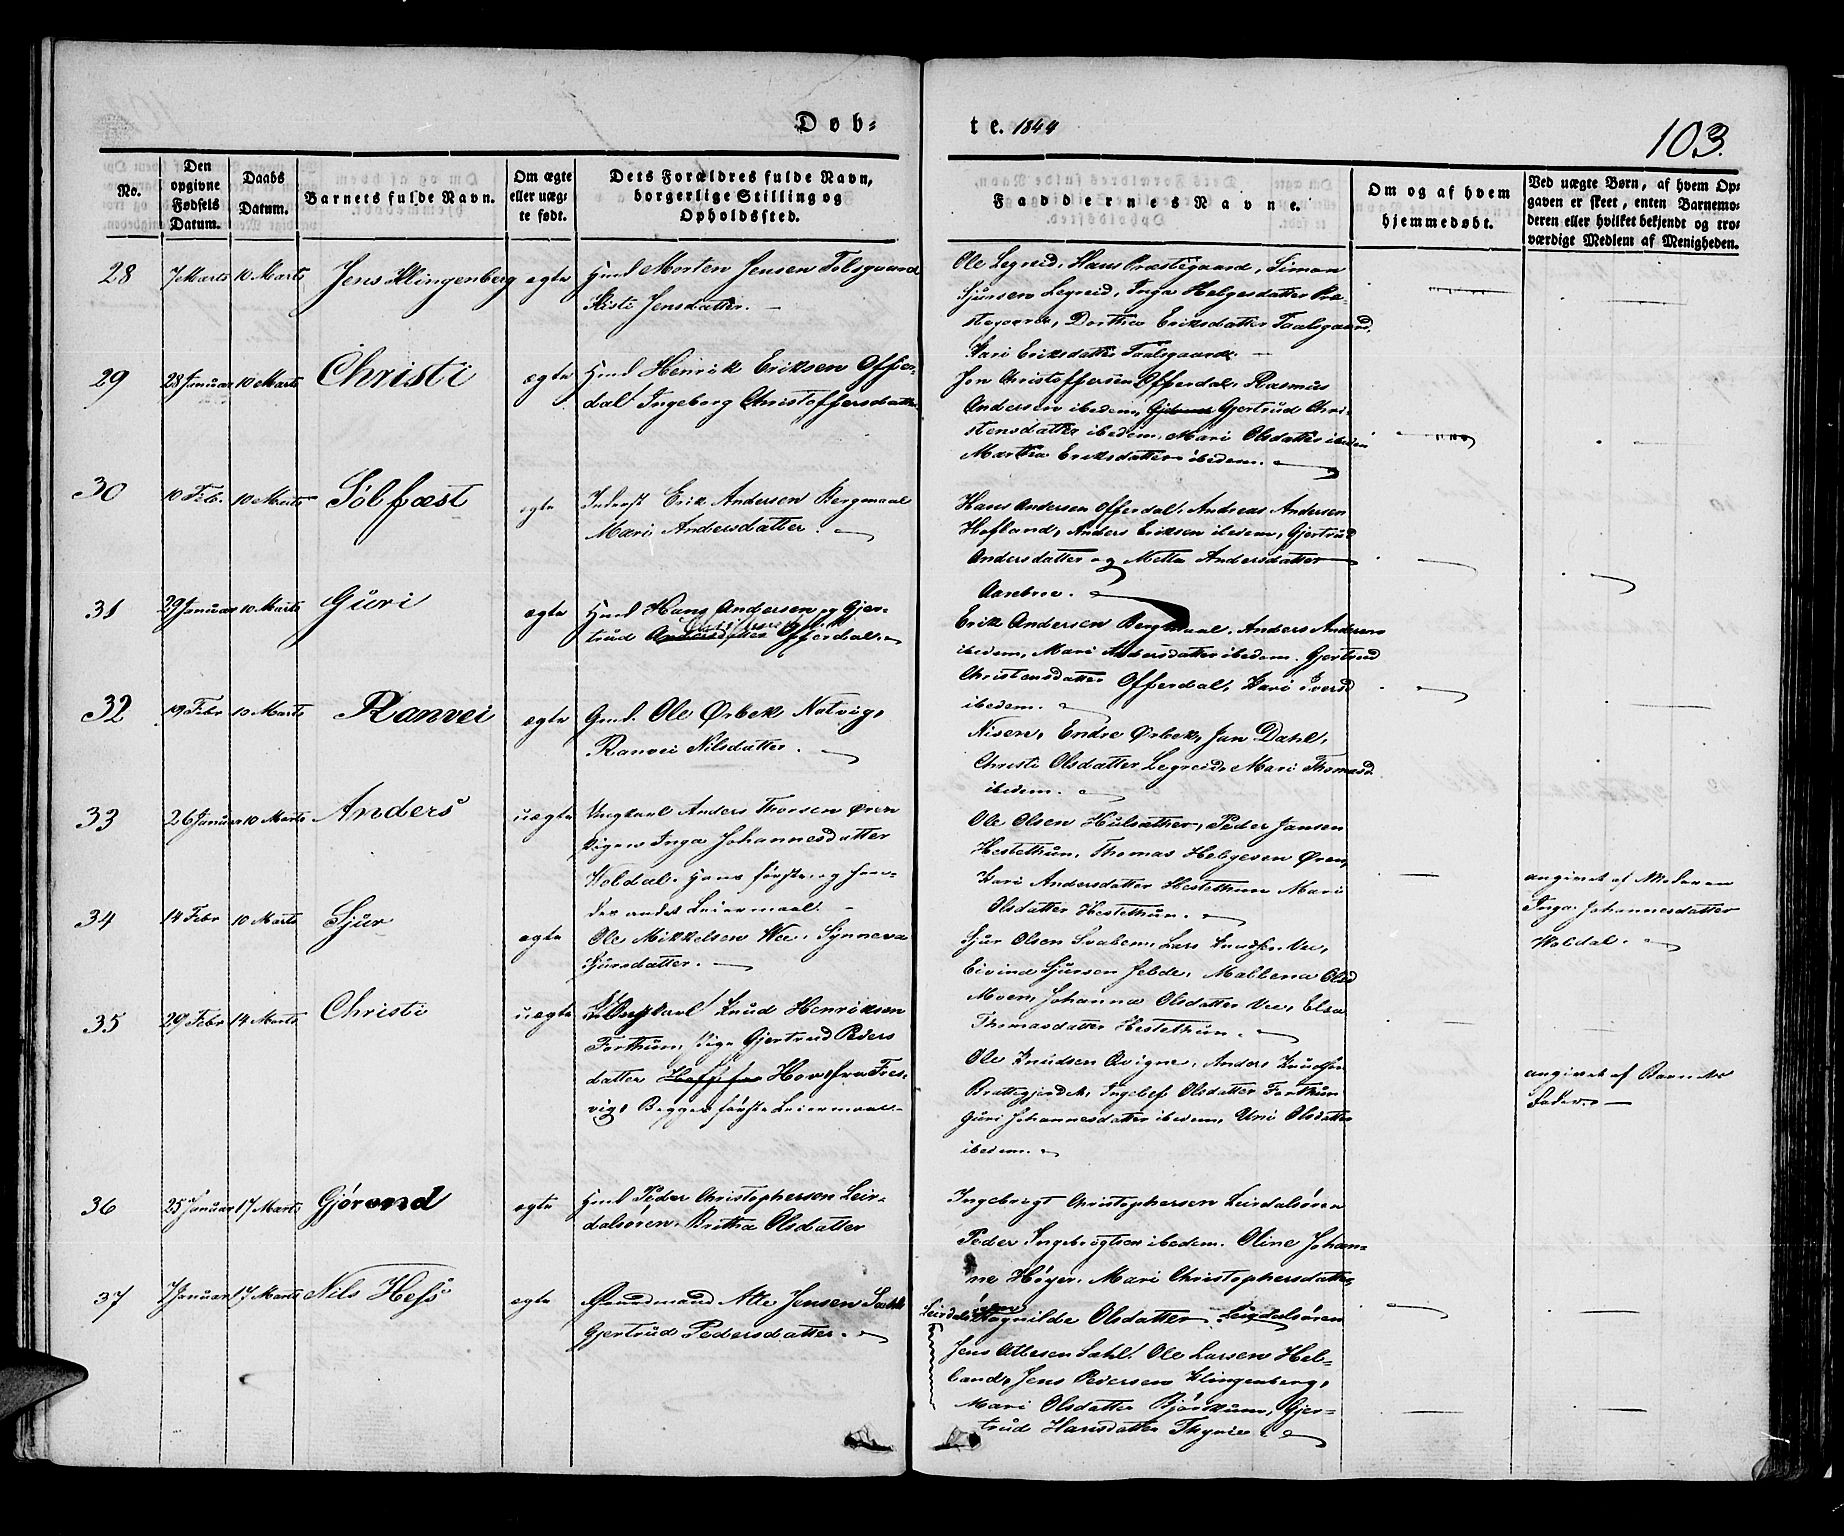 Døb-
te. 1844
103.
No.
Den opgivne Fødsels Datum.
Daabs Datum.
Barnets fulde Navn.
Om ægte eller uægte født.
Dets Forældres fulde Navn, borgerlige Stilling og Opholdssted.
Faddernes Navne.
Om og af hvem hjemmedøbt.
Ved uægte Børn, af hvem Opgaven er skeet, enten Barnemoderen eller hvilket bekjendt og troværdigt Medlem af Menigheden.
28 7 Marts 10 Marts Jens Klingenberg ægte
Hmd Morten Jensen
Kisti Jensdatter.
Ole Legreid, Hans Præstegaard, Simon
Sjursen Legreid, Inga Helgesdatter Præ-
stegaard, Dorthea Eriksdatter
Kari Eriksdatter
29 28 Januar 10 Marts Christi ægte
Hmd Henrik Eriksen Offer-
dal Ingeborg Christoffersdatter
Jon Christoffersen Offerdal, Rasmus
Andersen ibedem, Gjertrud Chri-
stensdatter ibedem, Mari Olsdatter ibedem
Martha Eriksdatter ibedem.
30 10 Feb. 10 Marts Sølfæst ægte
Inderst Erik Andersen Bergmaal
Mari Andersdatter.
Hans Andersen Offerdal, Andreas Andersen
Hofland, Anders Eriksen ibedem, Gjertrud
Andersdatter og Mette Andersdatter
Aarebroe.
31 29 Januar 10 Marts Guri ægte
Hmd Hans Andersen og Gjer-
trud Andersdatter Offerdal.
Erik Andersen Bergmaal, Anders Andersen
ibedem, Mari Andersdatter ibedem. Gjertrud
Christensdatter Offerdal, Kari Iversd
ibedem.
32 19 Febr 10 Marts Ranvei ægte
Gmd. Ole Ørbek Natvig,
Ranvei Nilsdatter.
Nisen, Endre Ørbek, Jan Dahl,
Christi Olsdatter Legreid, Mari Thomasd
ibedem.
33 26 Januar 10 Marts Anders uægte
Ungkarl Anders Thorsen Øren
Pigen Inga Johannesdatter
Woldal. Hans første og hen-
des andet Leiermaal.
Ole Olsen Hulsæther, Peder Jansen
Hestethun, Thomas Helgesen Øren,
Kari Andersdatter Hestethun Mari
Olsdatter Hestethun.
angivet af Moderen
Inga Johannesdatter
Woldal.
34 14 Febr 10 Marts Sjur ægte
Ole Mikkelsen Wee, Synneva
Sjursdatter.
Sjur Olsen Svaben, Lars Knudsen Vee,
Eivind Sjursen Jelde, Mallena Olsd
Moen, Johanna Olsdatter Vee, Elsa
Thomasdatter Hestethun.
35 29 Febr 14 Marts Christi uægte
Ungkarl Knud Henriksen
Forthun, Pige Gjertrud Peders
datter Hov fra Fres-
vig, Begges første Leiermaal.
Ole Knudsen Qvigne, Anders Knudsen
Brattegjerdet, Ingelef Olsdatter Forthun
Guri Johannesdatter ibedem, Uni Olsdatter
ibedem.
angivet af Barnets
Fader.
36 25 Januar 17 Marts Gjørond ægte
Hmd Peder Christophersen Leir-
dalsøren, Britha Olsdatter
Ingebregt Christophersen Leirdalsøren
Peder Ingebregtsen ibedem. Oline Johan-
ne Høyer. Mari Christophersdatter
Leirdalsøren Ragnilde Olsdatter Leirdalsøren
37 7 Januar 17 Marts Nils Hess ægte
Gaardmand Atle Jensen Sæhl
Gjertrud Pedersdatter.
Jens Atlesen Sæhl. Ole Larsen Hel-
land, Jens Pedersen Klingenberg,
Mari Olsdatter Bjørkum, Gjer-
trud Hansdatter